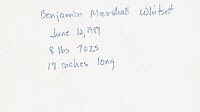 Benjamin Marshall Whitsett
June 12, 1989
8 lbs 7ozs
19 inches long